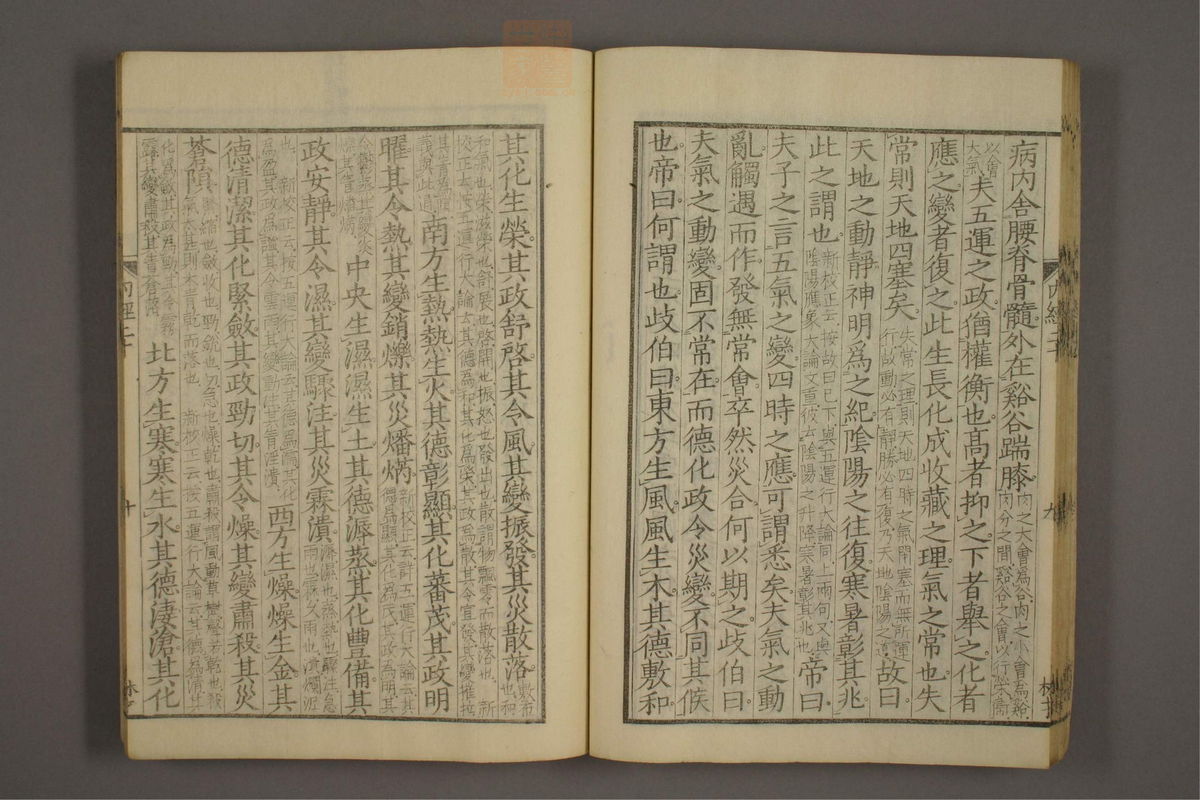 病内舎腰脊骨髓外在谿谷踹膝肉之大會爲谷肉之小會爲谿肉分之間谿谷之會以行榮衛
以會大氣夫五運之政猶權衡也高者抑之下者舉之化者
應之變者復之此生長化成收藏之理氣之常也失
常則天地四塞矣失常之理則天地四時之氣閉塞而無所運行故動必有靜勝必有復乃天地陰陽之道故曰
天地之動靜神明爲之紀陰陽之往復寒暑彰其兆
此之謂也新校正云按故曰已下與五運行大論同上兩句又與陰陽應象大論文重彼云陰陽之升降寒暑彰其兆也帝曰
夫子之言五氣之變四時之應可謂悉矣夫氣之動
亂觸遇而作發無常會卒然災合何以期之歧伯曰
夫氣之動變固不常在而德化政令災變不同其候
也帝曰何謂也歧伯曰東方生風風生木其德敷和
其化生榮其政舒啓其令風其變振發其災散落敷布也和
和氣也榮滋榮也舒展也啓開也振怒也發出也散謂物飄零而散落也新校正云按五運行大論云其德爲和其化爲榮其政爲散其令宣發其變摧拉
南方生熱熱生火其德彰顯其化蕃茂其政明
曜其令熱其變銷爍其災燔焫新校正云詳五運行大論云其德爲顯其化爲茂其政爲明其
中央生濕濕生土其德溽蒸其化豐備其
政安靜其令濕其變驟注其災霖潰溽濕也蒸熱也驟注急雨也霖久雨也潰爛泥
也新校正云按五運行大論云其德爲濡其化爲盈其政爲謐其令雲雨其變動注其眚淫潰西方生燥燥生金其
德清潔其化緊斂其政勁切其令燥其變肅殺其災
蒼隕緊縮也斂收也勁銳也切急也燥乾也肅殺謂風動草樹聲若乾也殺氣太甚則木青乾而落也新校正云按五運行大論云其德爲清其
化爲斂其政爲勁其令霧露其變肅殺其眚蒼落北方生寒寒生水其德淒滄其化
内經二十
九
内經二十
十